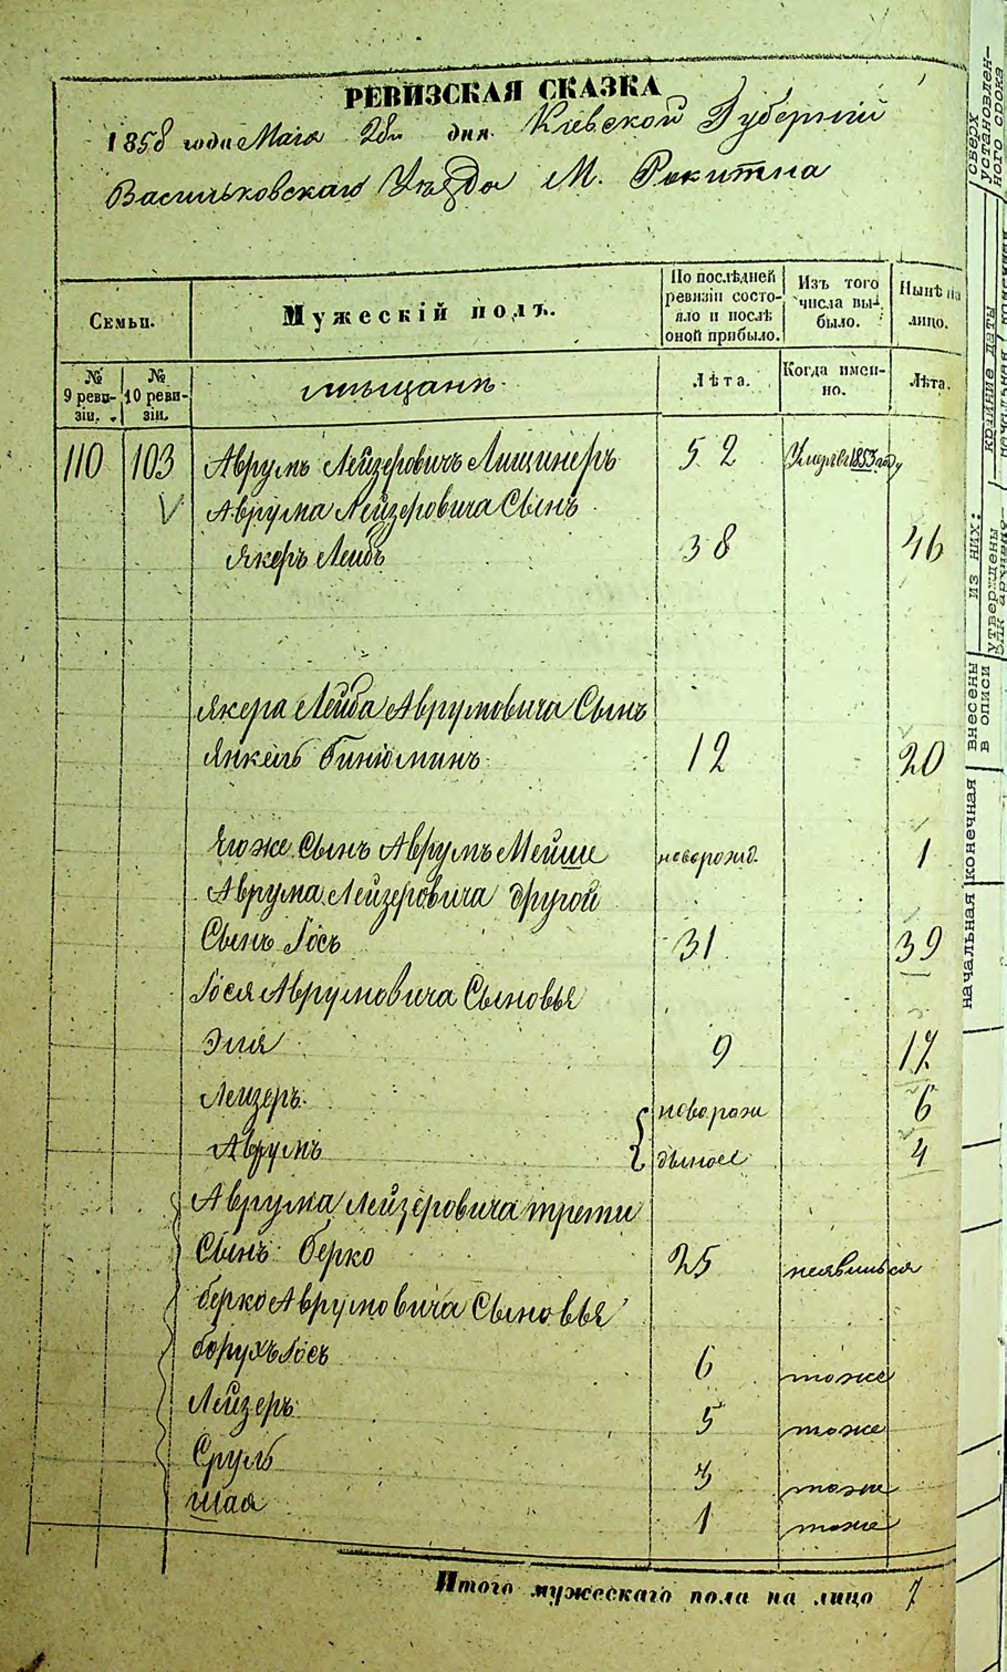 РЕВИЗСКАЯ СКАЗКА
1858 года Мая дня Кіевской Губерніи
Васильковскаго Уѣзда М. Рокитна
Семьи.
Мужескій полъ.
По послѣдней ревизіи состояло и послѣ оной прибыло.
Изъ того числа выбыло.
Нынѣ на лицо.
№ 9 ревизіи.
№ 10 ревизіи.
мѣщанъ
Лѣта.
Когда именно.
Лѣта.
110 103 Аврумъ Лейзеровичъ Лищинеръ 52 Умеръ 1853 году
V Аврума Лейзеровича Сынъ
Якеръ Лейбъ 38 46
Якера Лейба Аврумовича Сынъ
Янкель Биніоминъ 12 20
Ягоже Сынъ Аврумъ Мейше новорожд. 1
Аврума Лейзеровича другой
Сынъ Іосъ 31 39
Іося Аврумовича Сыновья
Эля 9 17
Лейзеръ новорож 6
Аврумъ 4
Аврума Лейзеровича трети
Сынъ Берко 25 неявился
Берко Аврумовича Сыновья
Борухъ Іосъ 6 тоже
Лейзеръ 5 тоже
Сруль 3 тоже
Шая 1 тоже
Итого мужескаго пола на лицо 7
сверх установленного срока
крайние даты
из них:
утверждены
внесены в описи
конечная
начальная